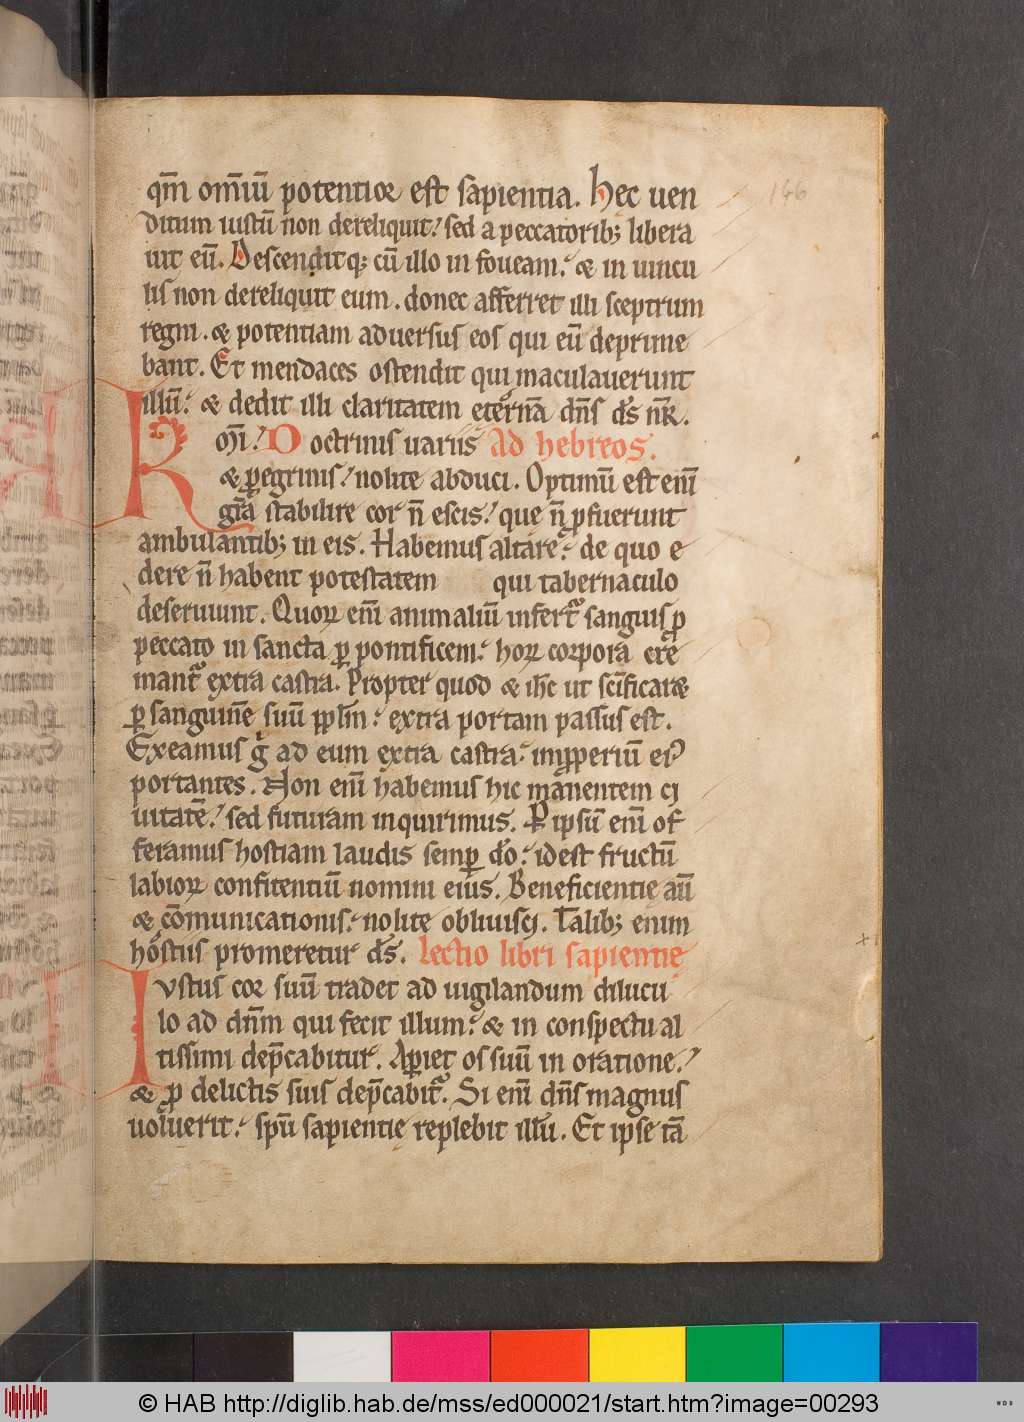 qm̄ om̄iū potentior est sapientia. Hec uen
ditum iustū non dereliquit. sed a peccatorib; libera
uit eū. Descenditq; cū illo in foueam. & in uincu
lis non dereliquit eum. donec afferret illi sceptrum
regni. & potentiam aduersus eos qui eū deprime
bant. Et mendaces ostendit qui maculauerunt
illū. & dedit illi claritatem eternā dn̄s ds̄ nr̄.
Doctrinis uariis Ad hebreos.
& ꝑegrinis nolite abduci. Optimū est enī
gr̄a stabilire cor n̄ escis. que n̄ ꝓfuerunt
ambulantib; in eis. Habemus altare. de quo e
dere n̄ habent potestatem qui tabernaculo
deseruiunt. Quoꝝ enī animaliū infert᷑ sanguis ꝓ
peccato in sancta ꝑ pontificem. hoꝝ corpora cre
mant᷑ extra castra. Propter quod & ih̄c ut scīficar&
ꝑ sanguinē suū ppl̄m. extra portam passus est.
Exeamus g̊ ad eum extra castra. imꝓperiū ei᷒
portantes. Non enī habemus hic manentem ci
uitatē. sed futuram inquirimus. ꝑ ipsū enī of
feramus hostiam laudis semꝑ do̅. idest fructū
labioꝝ confitentiū nomini eius. Beneficientię aū
& cōmunicationis. nolite obliuisci. Talib; enim
hostiis promeretur ds̄. Lectio libri sapientię
Iustus cor suū tradet ad uigilandum dilucu
lo ad dn̄m qui fecit illum. & in conspectu al
tissimi dep̄cabitur. Aperiet os suū in oratione.
& ꝓ delictis suis dep̄cabit᷑. Si enī dn̄s magnus
uoluerit. spū sapientie replebit illū. Et ipse tā
146
© HAB http://diglib.hab.de/mss/ed000021/start.htm?image=00293